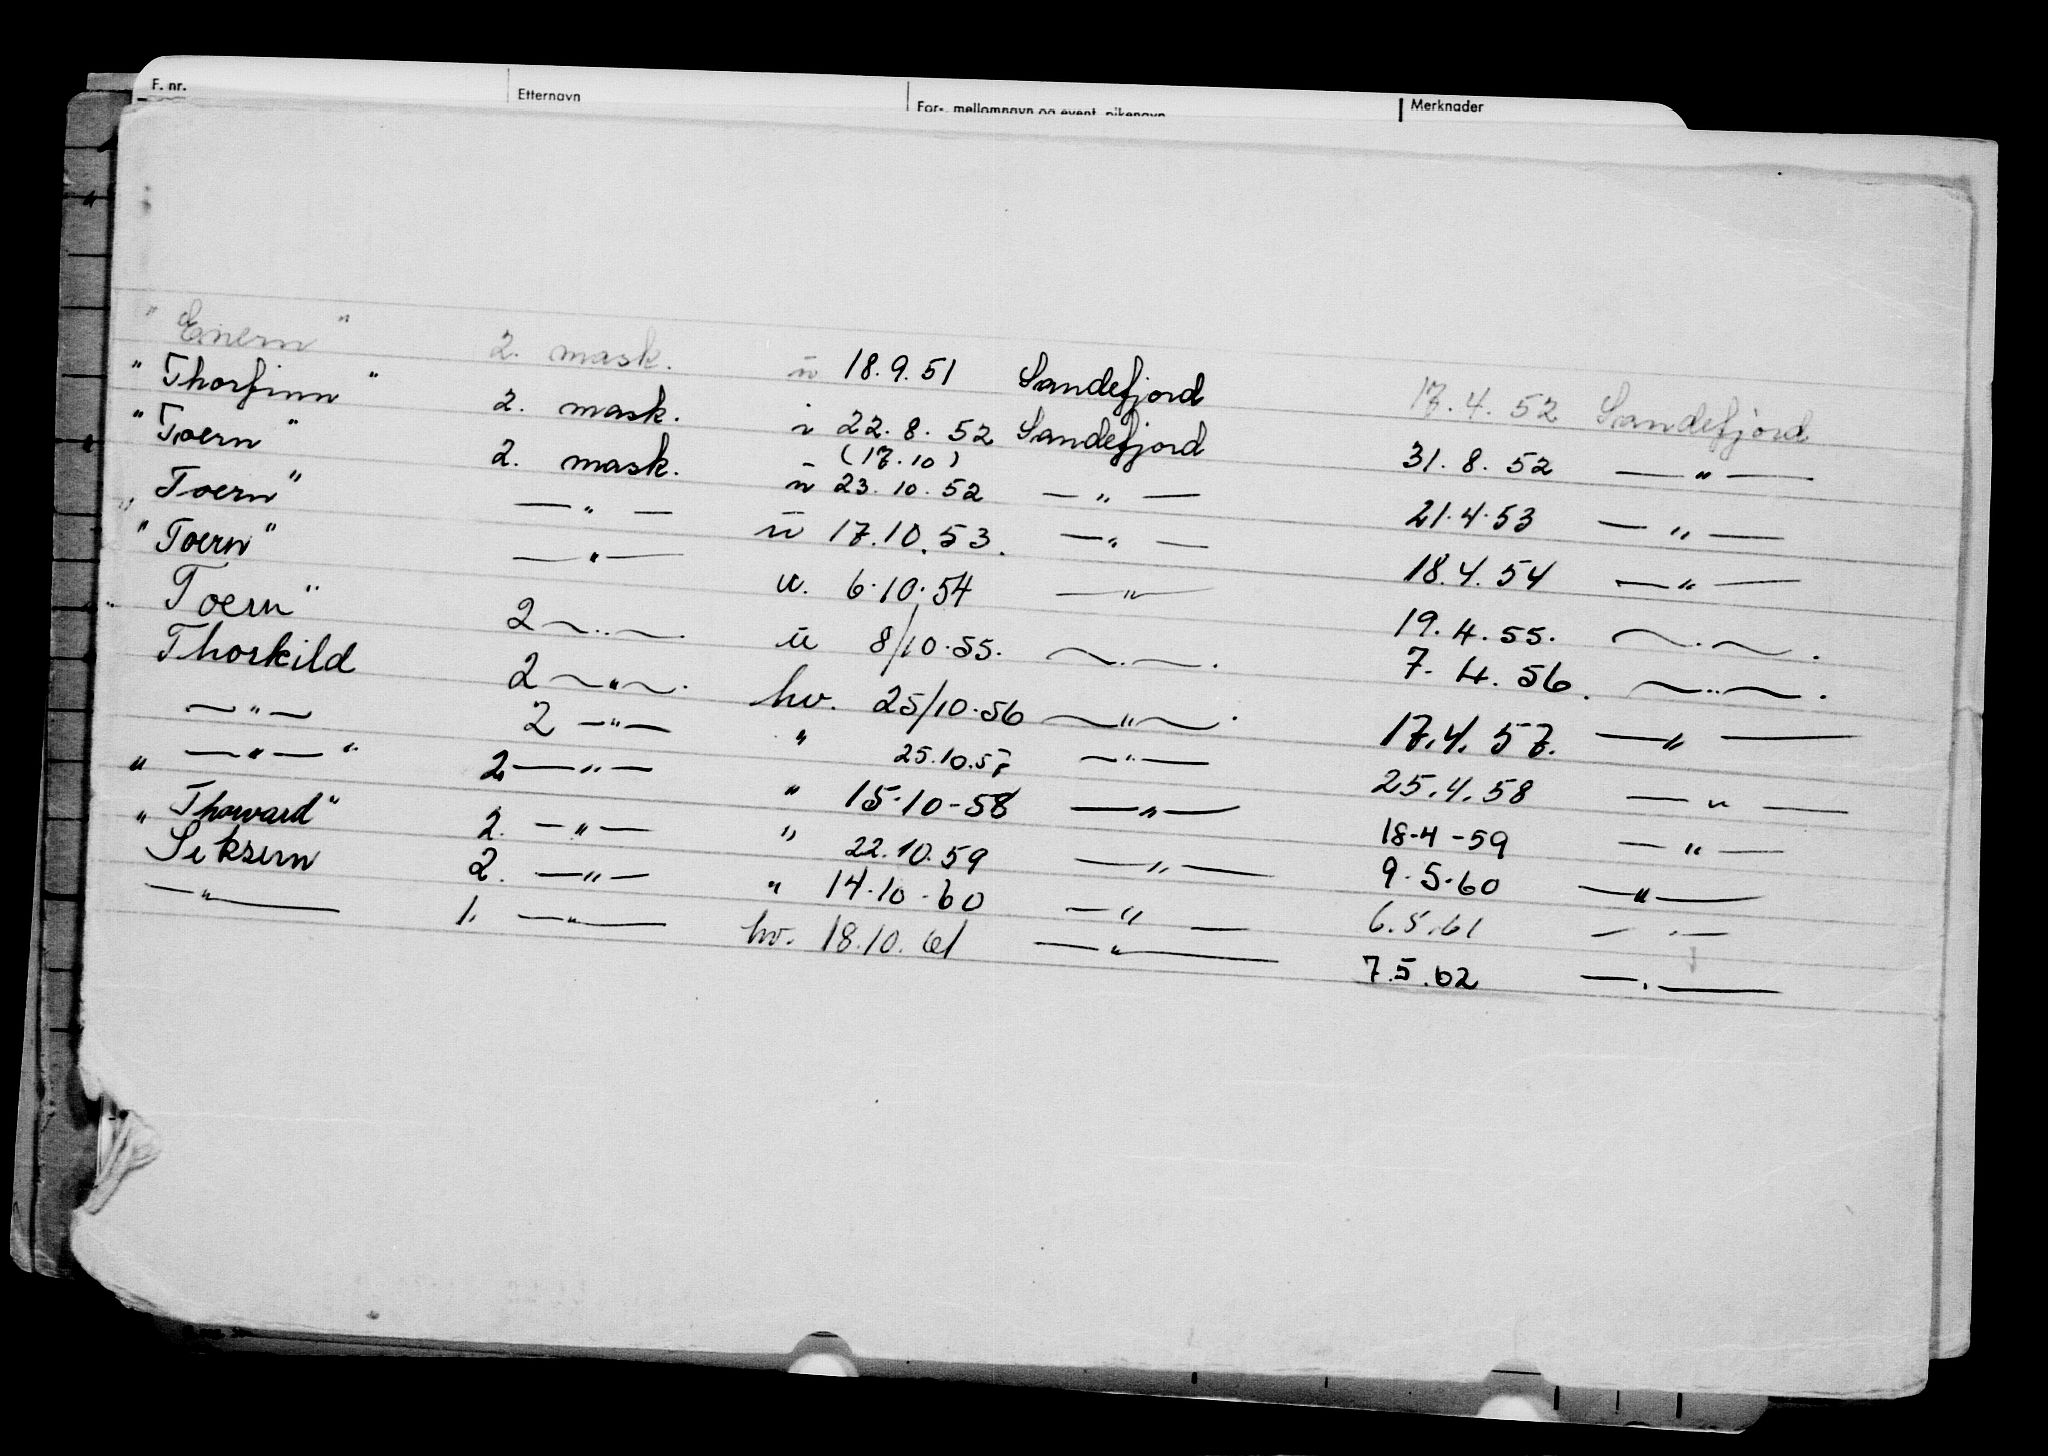 F. nr. Etternavn For-, mellomnavn og event. pikenavn Merknader
" Enern " 2. mask. u 18.9.51 Sandefjord 17.4.52 Sandefjord
" Thorfinn " 2. mask. i 22.8.52 Sandefjord 31.8.52 — " —
" Toern " 2. mask. (17.10) u 23.10.52 — " — 21.4.53 — " —
" Toern " — " — u 17.10.53. — " — 18.4.54 — " —
" Toern " — " — u. 6.10.54 — " — 19.4.55. — " — .
" Toern " 2 — " — . u 8/10.55. — " — . 7.4.56. — " — .
Thorkild 2 — " — . hv. 25/10.56 — " — . 17.4.57. — " —
— " — 2 — " — " 25.10.57 — " — 25.4.58 — " —
" — " — " 2 — " — " 15.10-58 — " — 18-4-59 — " —
" Thorvard " 2. — " — " 22.10.59 — " — 9.5.60 — " —
Seksern 2. — " — " 14.10.60 — " — 6.5.61 — " —
— " — 1. — " — hv. 18.10.61 — " — 7.5.62 — " —